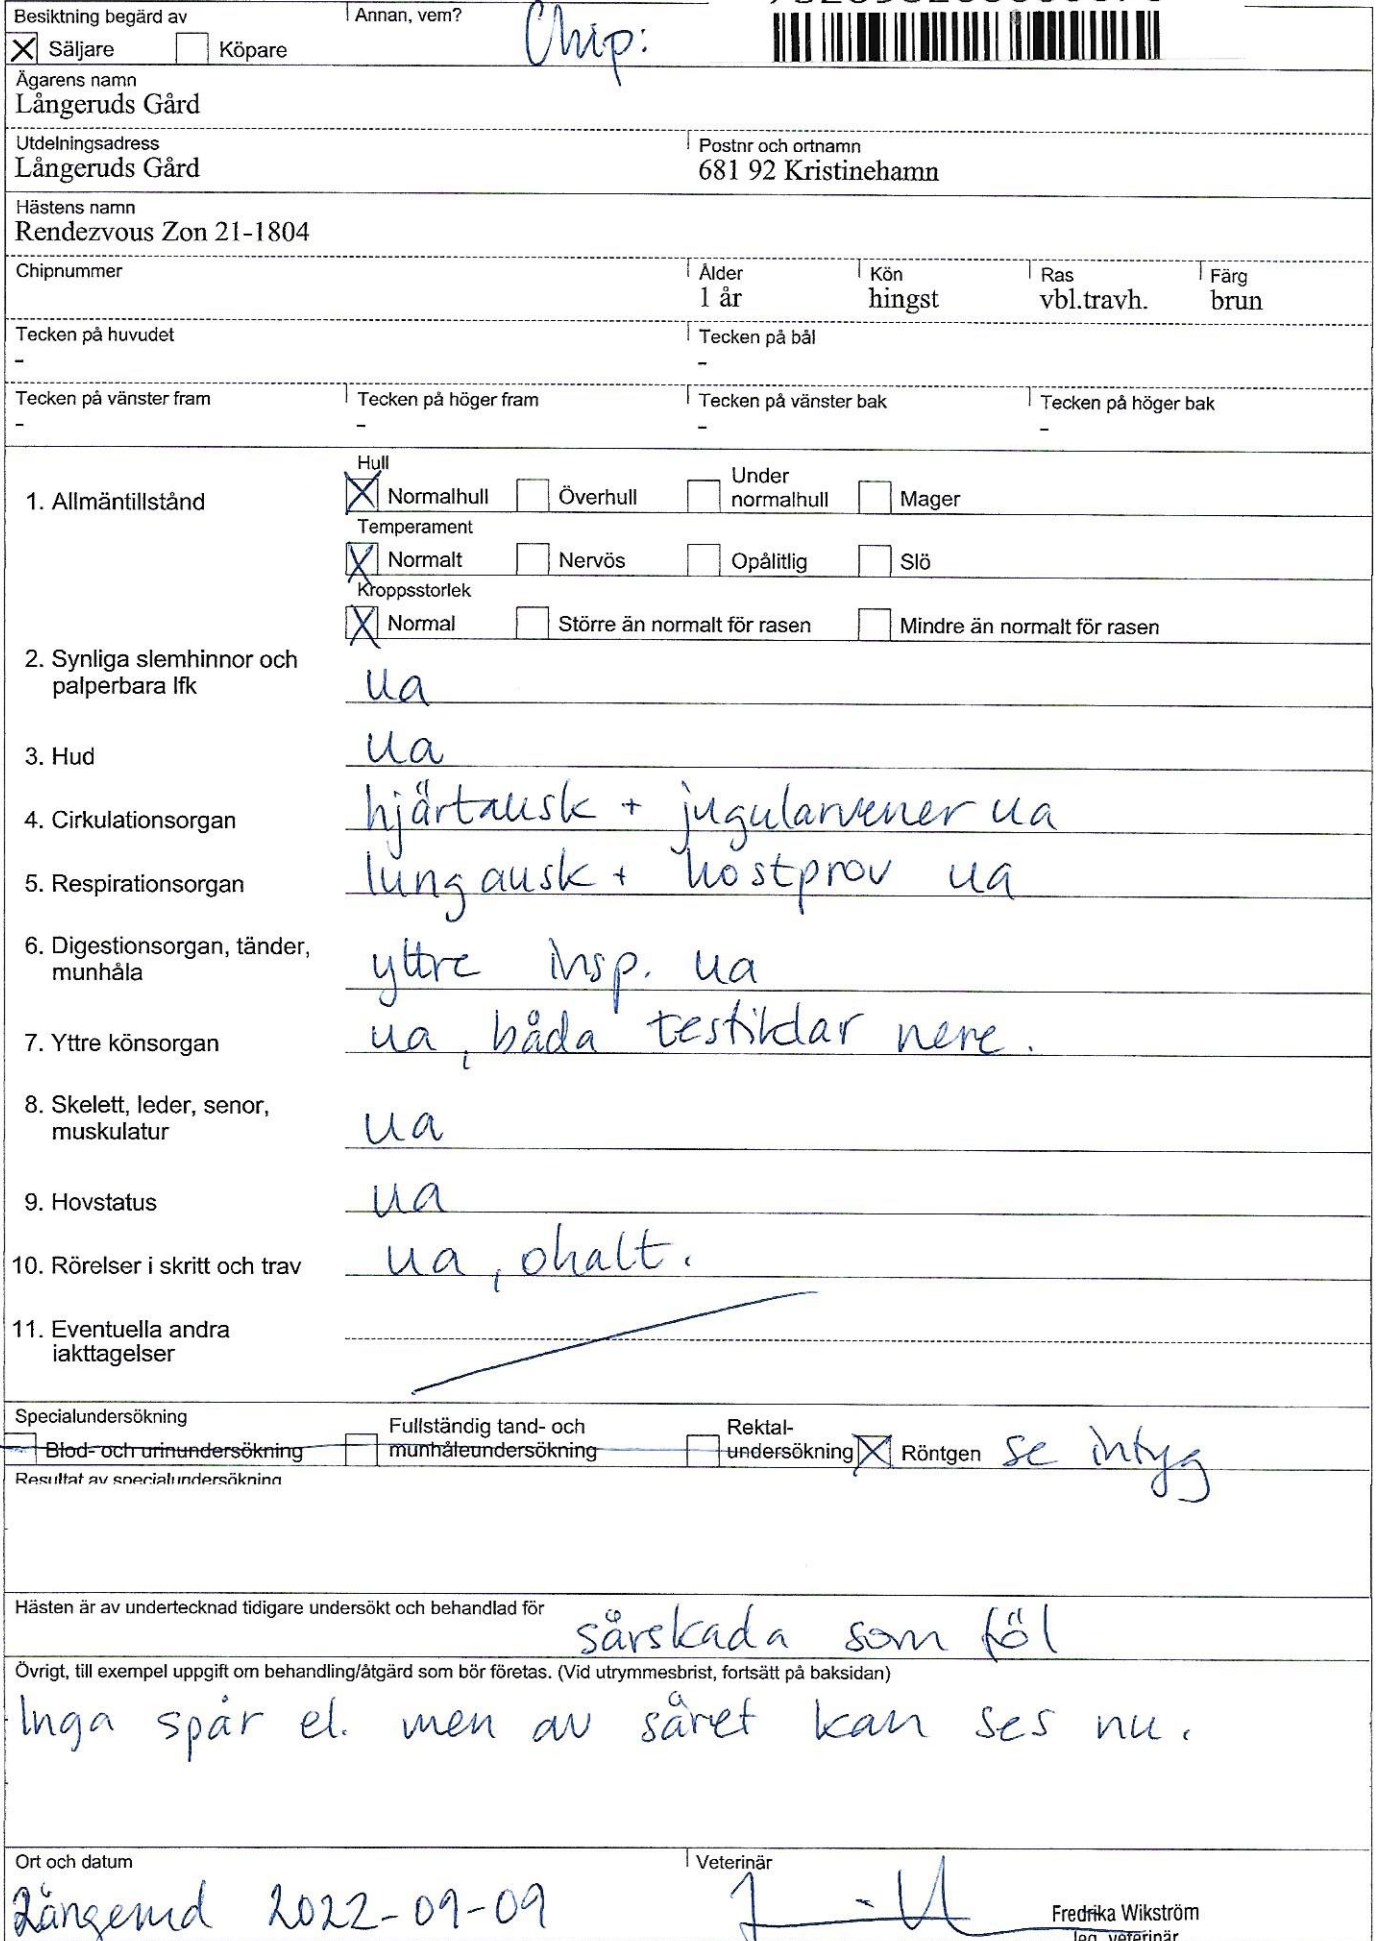 Besiktning begärd av Annan, vem? Chip:
Säljare Köpare
Ägarens namn
Långeruds Gård
Utdelningsadress Postnr och ortnamn
Långeruds Gård 681 92 Kristinehamn
Hästens namn
Rendezvous Zon 21-1804
Chipnummer Ålder Kön Ras Färg
1 år hingst vbl.travh. brun
Tecken på huvudet Tecken på bål
- -
Tecken på vänster fram Tecken på höger fram Tecken på vänster bak Tecken på höger bak
- - - -
Hull
1. Allmäntillstånd Normalhull Överhull Under normalhull Mager
Temperament
Normalt Nervös Opålitlig Slö
Kroppsstorlek
Normal Större än normalt för rasen Mindre än normalt för rasen
2. Synliga slemhinnor och
palperbara lfk ua
3. Hud ua
4. Cirkulationsorgan hjärtausk + jugularvener ua
5. Respirationsorgan lungausk + hostprov ua
6. Digestionsorgan, tänder,
munhåla yttre insp. ua
7. Yttre könsorgan ua, båda testiklar nere.
8. Skelett, leder, senor,
muskulatur ua
9. Hovstatus ua
10. Rörelser i skritt och trav ua, ohalt.
11. Eventuella andra
iakttagelser
Specialundersökning Fullständig tand- och Rektal-
Blod- och urinundersökning munhåleundersökning undersökning Röntgen se intyg
Resultat av specialundersökning
Hästen är av undertecknad tidigare undersökt och behandlad för sårskada som föl
Övrigt, till exempel uppgift om behandling/åtgärd som bör företas. (Vid utrymmesbrist, fortsätt på baksidan)
Inga spår el. men av såret kan ses nu.
Ort och datum Veterinär
Långerud 2022-09-09 Fredrika Wikström
leg. veterinär